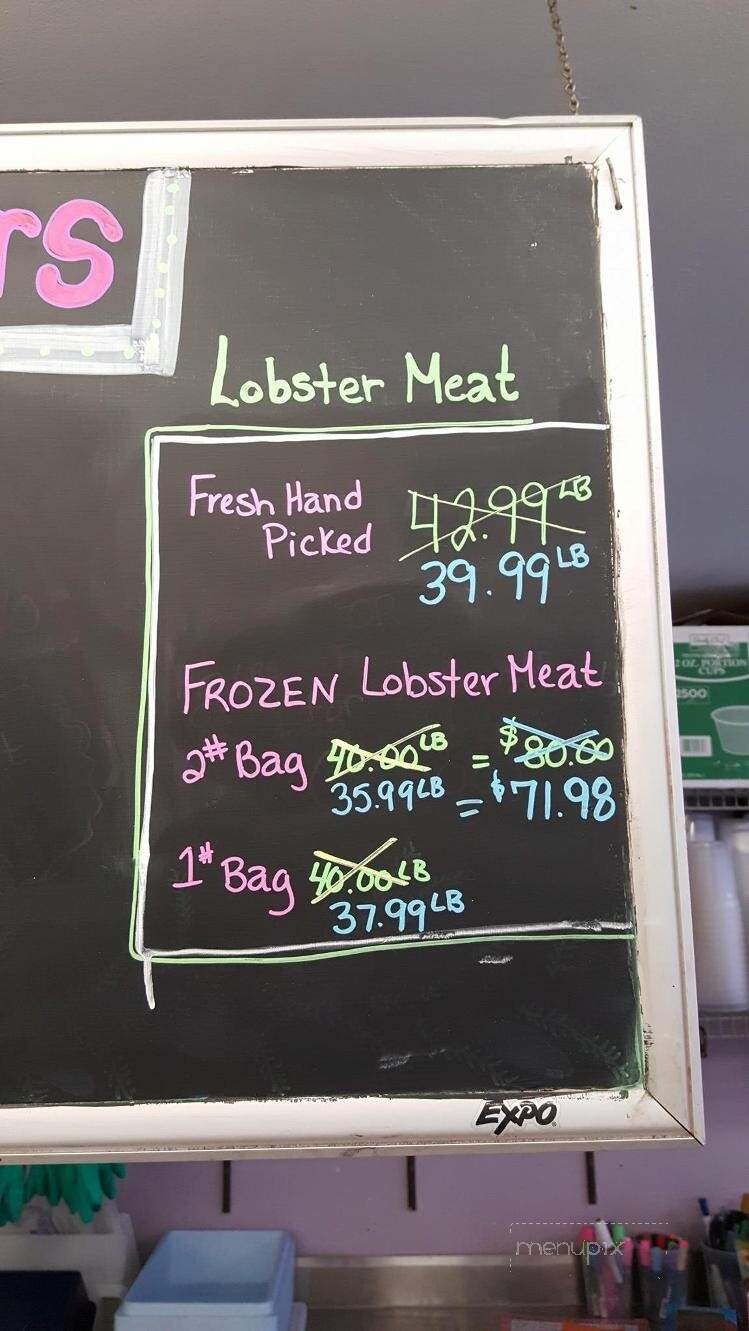 rs
Lobster Meat
Fresh Hand 42.99 LB
Picked 39.99 LB
FROZEN Lobster Meat
2# Bag 40.00 LB = $80.00
35.99 LB = $71.98
1# Bag 40.00 LB
37.99 LB
2 OZ. PORTION
CUPS
2500
EXPO
menupix